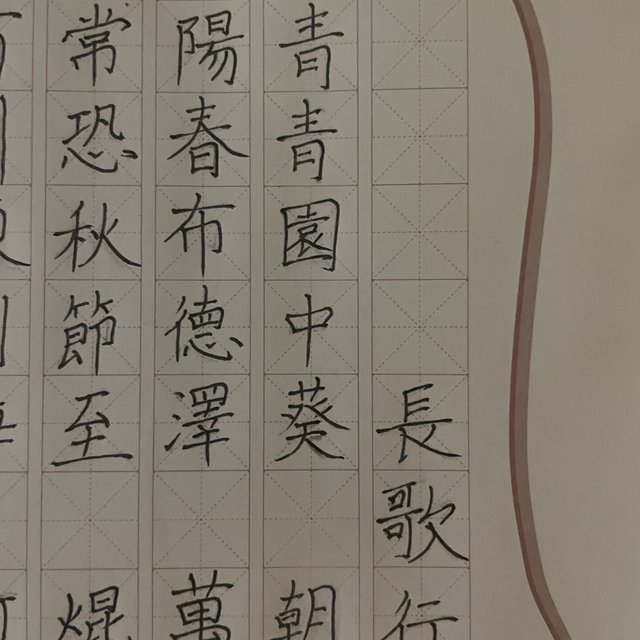 長歌行
青青園中葵 朝
陽春布德澤 萬
常恐秋節至 焜